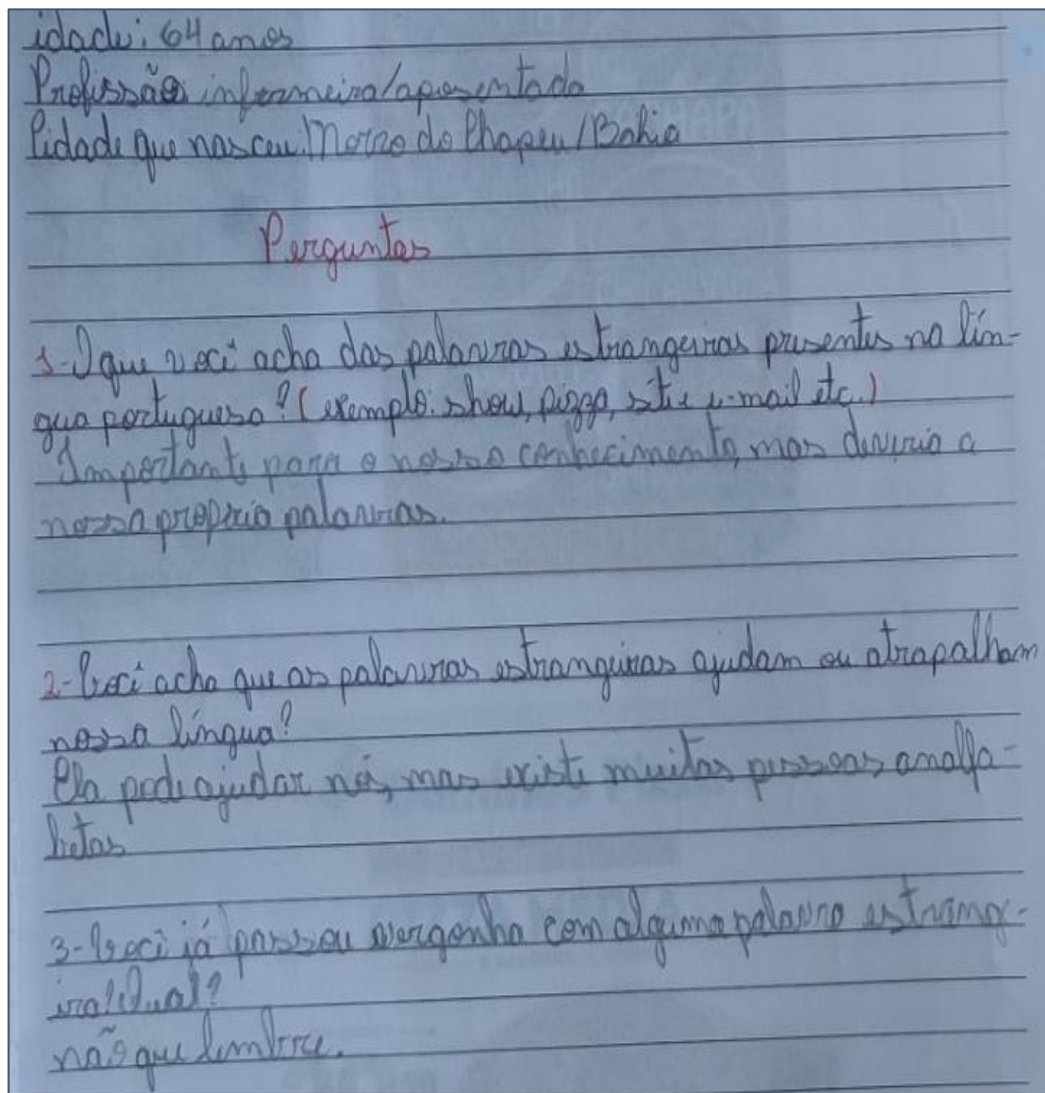 idade: 64 anos
Profissão: infermeira/aposentada
Cidade que nasceu: Morro do Chapeu/Bahia
Perguntas
1-O que você acha das palavras estrangeiras presentes na lín-
gua portuguesa? (exemplo: show, pizza, site e-mail etc.)
Importante para o nosso conhecimento, mas deveria a
nossa propria palavras.
2-Você acha que as palavras estrangeiras ajudam ou atrapalham
nossa língua?
Ela pode ajudar nós, mas existe muitas pessoas analfa-
betas
3-Você já passou vergonha com alguma palavra estrange-
ira? Qual?
não que lembre.